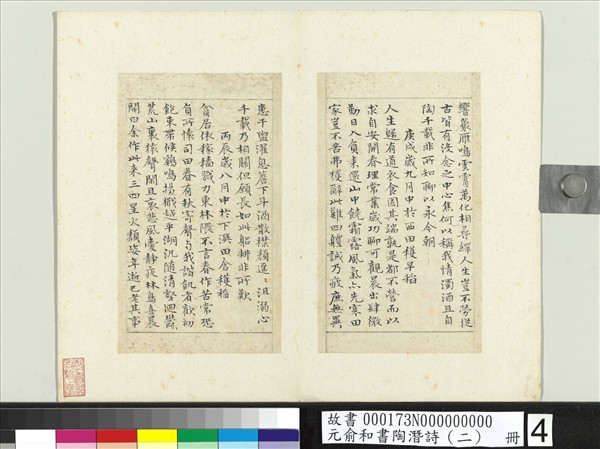 響叢雁鳴雲霄萬化相尋繹人生豈不勞從
古皆有沒念之中心焦何以稱我情濁酒且自
陶千載非所知聊以永今朝
庚戌歲九月中於西田穫早稻
人生歸有道衣食固其端孰是都不營而以
求自安開春理常業歲功聊可觀晨出肆微
勤日入負耒還山中饒霜露風氣亦先寒田
家豈不苦弗獲辭此難四體誠乃疲庶無異
患干盥濯息簷下斗酒散襟顏遙〻沮溺心
千載乃相關但願長如此躬耕非所歎
丙辰歲八月中於下潠田舍穫稻
貧居依稼穡戮力東林隈不言春作苦常恐
負所懷司田眷有秋寄聲與我諧飢者歡初
飽束帶候鷄鳴揚檝越平湖汎隨清壑迴欝〻
荒山裏猿聲閒且哀悲風愛靜夜林鳥喜晨
開曰余作此來三四星火頹姿年逝已老其事
故書000173N000000000
元俞和書陶潛詩(二) 冊
4